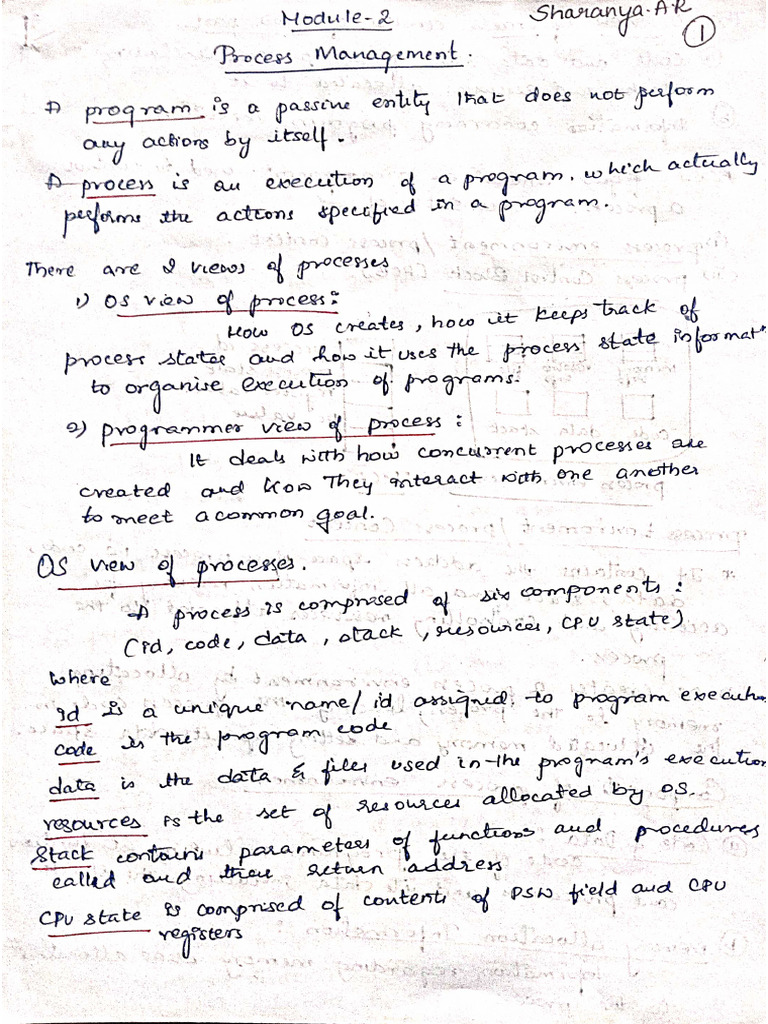 Module-2
Sharanya.A.R
1
Process Management.
A program is a passive entity that does not perform
any actions by itself.
A process is an execution of a program. which actually
performs the actions specified in a program.
There are 2 views of processes
1) OS view of process:
How OS creates, how it keeps track of
process states and how it uses the process state informat
to organise execution of programs.
2) programmer view of process:
It deals with how concurrent processes are
created and how They interact with one another
to meet a common goal.
OS view of processes.
A process is comprised of six components:
(id, code, data, stack, resources, CPU state)
where
Id is a unique name/id assigned to program execution
code is the program code
data is the data & files used in the program's execution
resources is the set of resources allocated by OS.
Stack contains parameters of functions and procedures
called and their return address
CPU state is comprised of contents of PSW field and CPU
registers